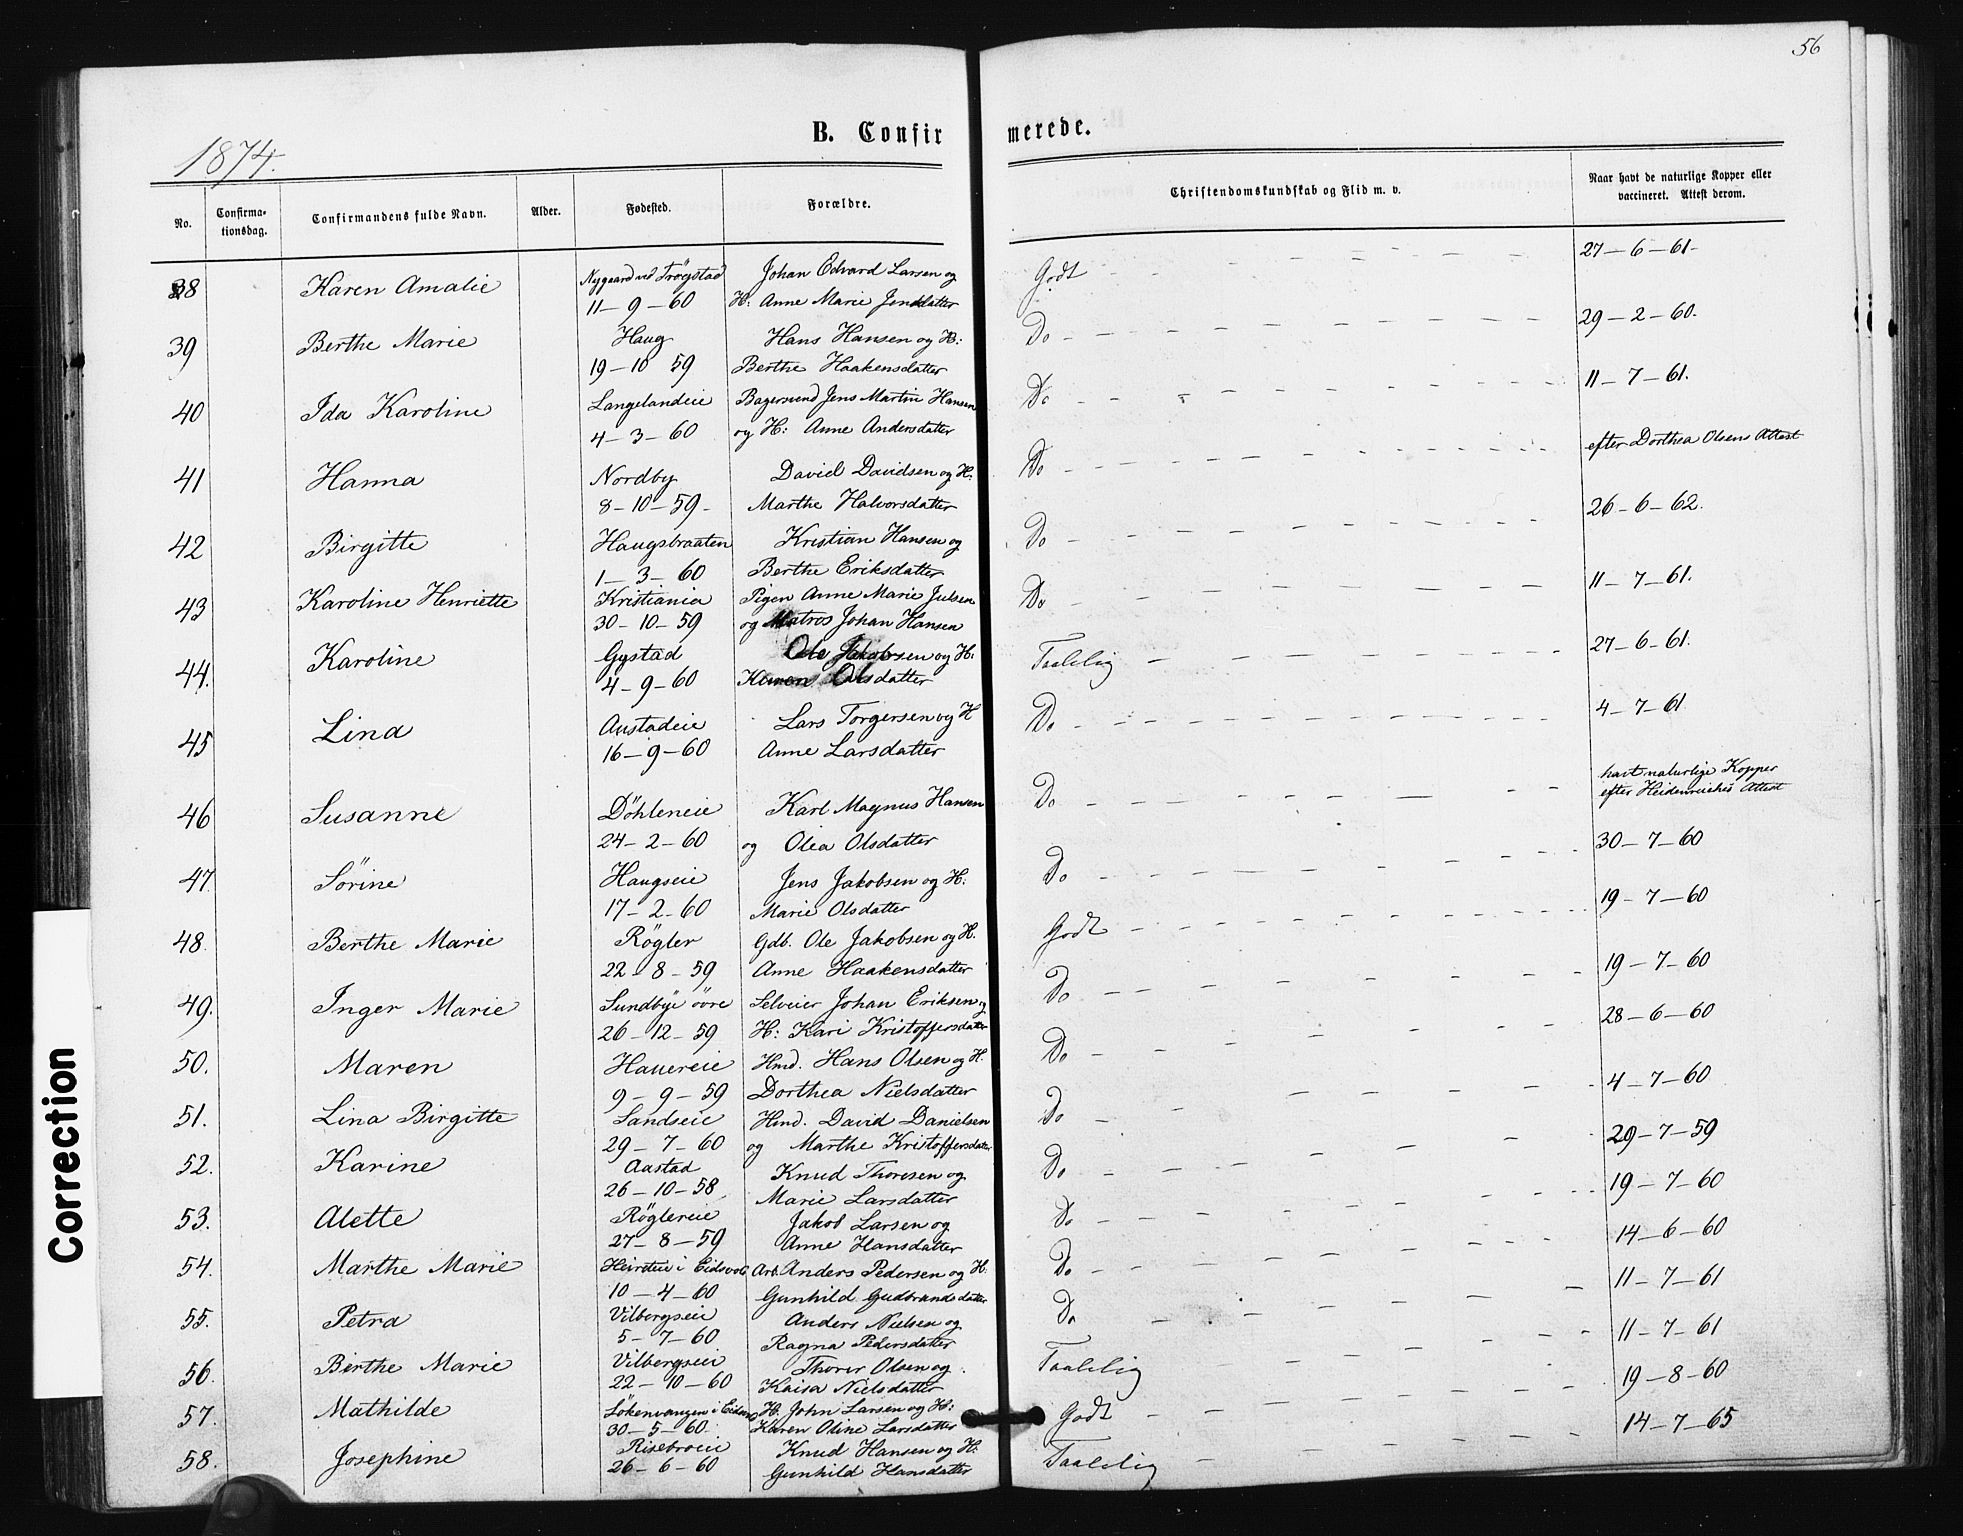 56
1874.
B. Confir merede.
No. Confirma- tionsdag. Confirmandens fulde Navn. Alder. Fødested. Forældre. Christendomskundskab og Flid m. v. Naar havt de naturlige Kopper eller vaccineret. Attest derom.
38 Karen Amalie Nygaard ved Trögstad Johan Edvard Larsen og Godt 27-6-61-
11-9-60 H: Anne Marie Jensdatter
39 Berthe Marie Haug Hans Hansen og H: Do 29-2-60.
19-10 59 Berthe Haakensdatter
40 Ida Karoline Langelandeie Jens Martin Hansen Do 11-7-61.
4-3-60 og H: Anne Andersdatter
41 Hanna Nordby David Davidsen og H. Do efter Dorthea Olsens Attest
8-10-59- Marthe Halvorsdatter
42 Birgitte Haugsbraaten Kristian Hansen og Do 26-6-62.
1-3-60 Berthe Eriksdatter
43 Karoline Henriette Kristiania Pigen Anne Marie Julsen Do 11-7-61.
30-10-59 og Matros Johan Hansen
44. Karoline Gystad Ole Jakobsen og H: Taalelig 27-6-61.
4-9-60 Karen Olsdatter
45 Lina Austadeie Lars Torgersen og H Do 4-7-61
16-9-60 Anne Larsdatter
46 Susanne Döhleneie Karl Magnus Hansen Do havt naturlige Kopper
efter Heidenreichs Attest
24-2-60 og Olea Olsdatter
47 Sörine Haugseie Jens Jakobsen og H: Do 30-7-60
17-2-60 Marie Olsdatter
48. Berthe Marie Røgler Gdb. Ole Jakobsen og H. Godt 19-7-60
22-8-59 Anne Haakensdatter
49. Inger Marie Sundbye övre Selveier Johan Eriksen og Do 19-7-60
26-12-59 H: Kari Kristoffersdatter
50. Maren Hauereie Hmd. Hans Olsen og H. Do 28-6-60
9-9-59 Dorthea Nielsdatter
51. Lina Birgitte Sandseie Hmd. David Danielsen Do 4-7-60
29-7-60 og Marthe Kristoffersdatter
52. Karine Aastad Knud Thoresen og Do 29-7-59
26-10-58 Marie Larsdatter
53. Alette Røglereie Jakob Larsen og Do 19-7-60
27-8-59 Anne Hansdatter
54. Marthe Marie i Eidsvold Arb. Anders Pedersen og H. Do 14-6-60
10-4-60 Gunhild Gudbrandsdatter
55. Petra Vilbergseie Anders Nielsen og Do 11-7-61
5-7-60 Ragna Pedersdatter
56. Berthe Marie Vilbergseie Thorer Olsen og Taalelig 11-7-61
22-10-60 Kaisa Nielsdatter
57. Mathilde i Eidsvold H. John Larsen og H: Godt 19-8-60
30-5-60. Karen Oline Larsdatter
58. Josephine Risebroeie Knud Hansen og H: Taalelig 14-7-65
26-6-60 Gunhild Hansdatter
Correction